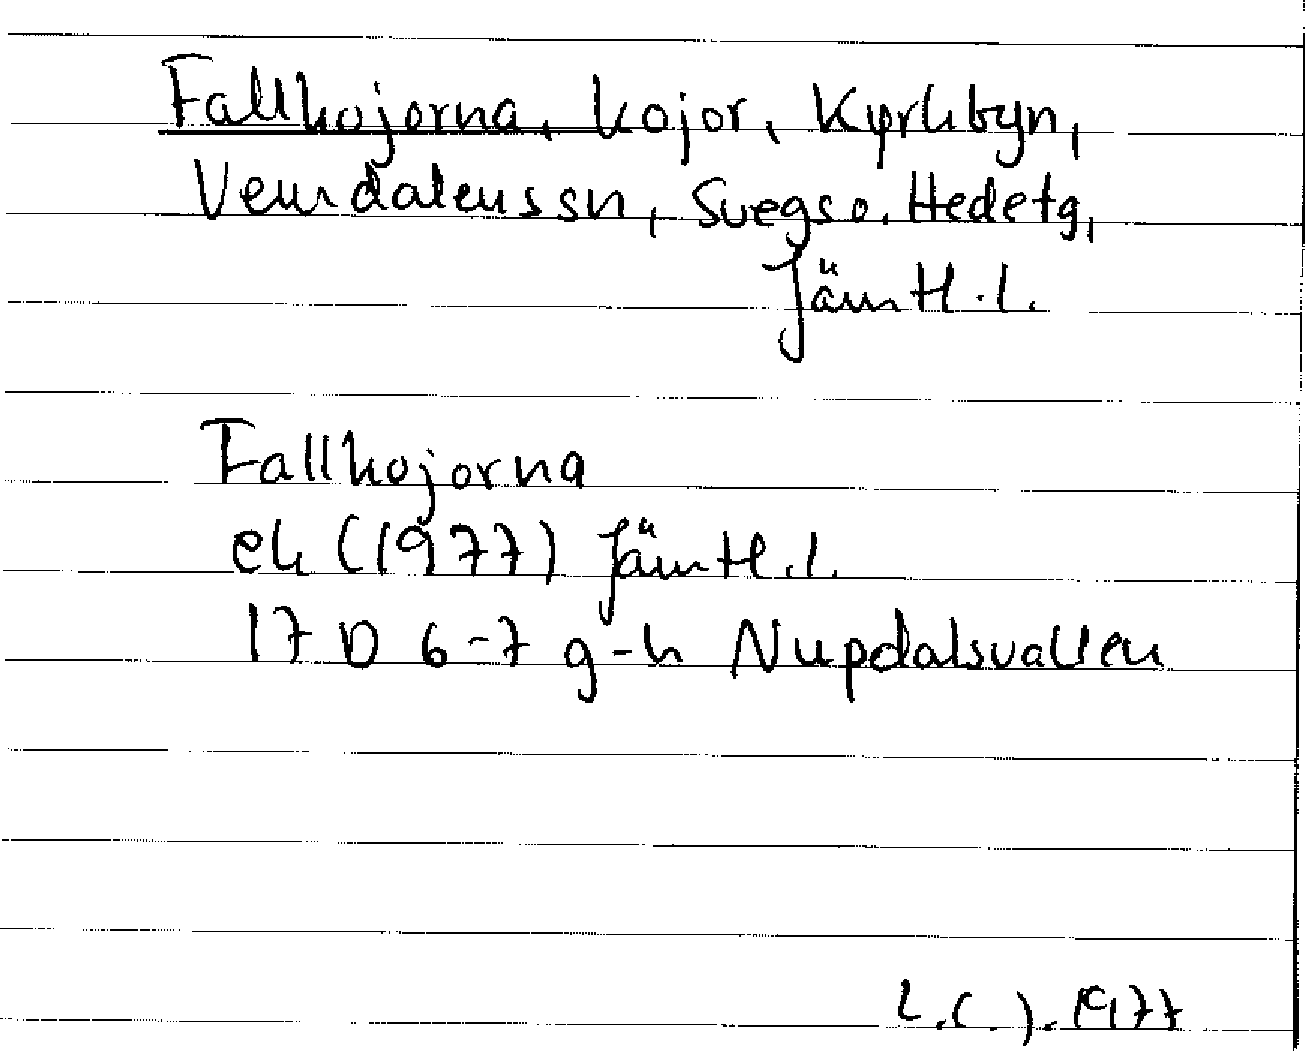 Fallkojorna, kojor, Kyrkbyn,
Vemdalens sn, Svegs o. Hede tg,
Jämtl. l.
Fallkojorna
ek (1977) Jämtl. l.
17 D 6-7 g-h Nupdalsvallen
L.C.J. 1977